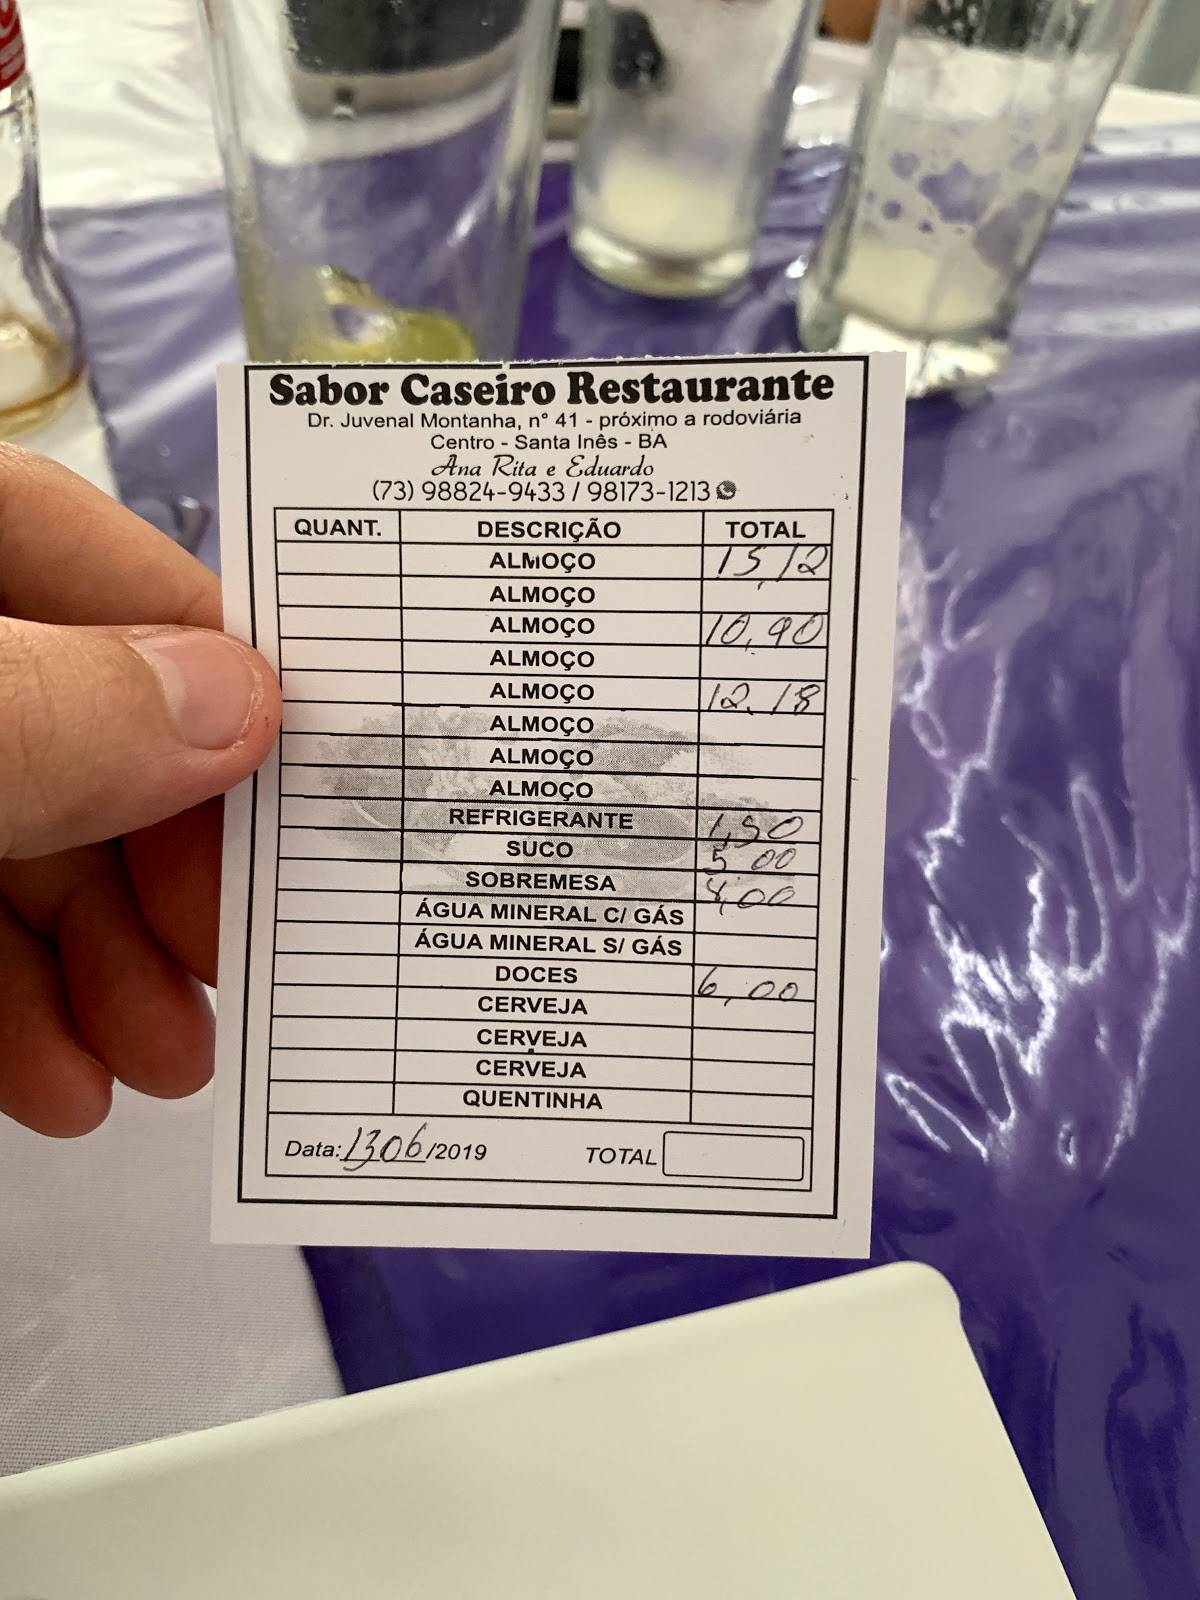 Sabor Caseiro Restaurante
Dr. Juvenal Montanha, n° 41 - próximo a rodoviária
Centro - Santa Inês - BA
Ana Rita e Eduardo
(73) 98824-9433 / 98173-1213
QUANT. DESCRIÇÃO TOTAL
ALMOÇO 15,12
ALMOÇO
ALMOÇO 10,90
ALMOÇO
ALMOÇO 12,18
ALMOÇO
ALMOÇO
ALMOÇO
REFRIGERANTE 1,50
SUCO 5 00
SOBREMESA 4,00
ÁGUA MINERAL C/ GÁS
ÁGUA MINERAL S/ GÁS
DOCES 6,00
CERVEJA
CERVEJA
CERVEJA
QUENTINHA
Data: 1306/2019 TOTAL